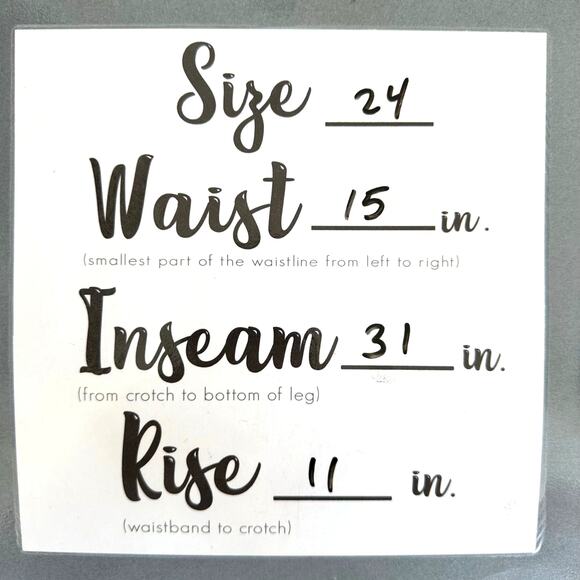 Size 24
Waist 15 in.
(smallest part of the waistline from left to right)
Inseam 31 in.
(from crotch to bottom of leg)
Rise 11 in.
(waistband to crotch)